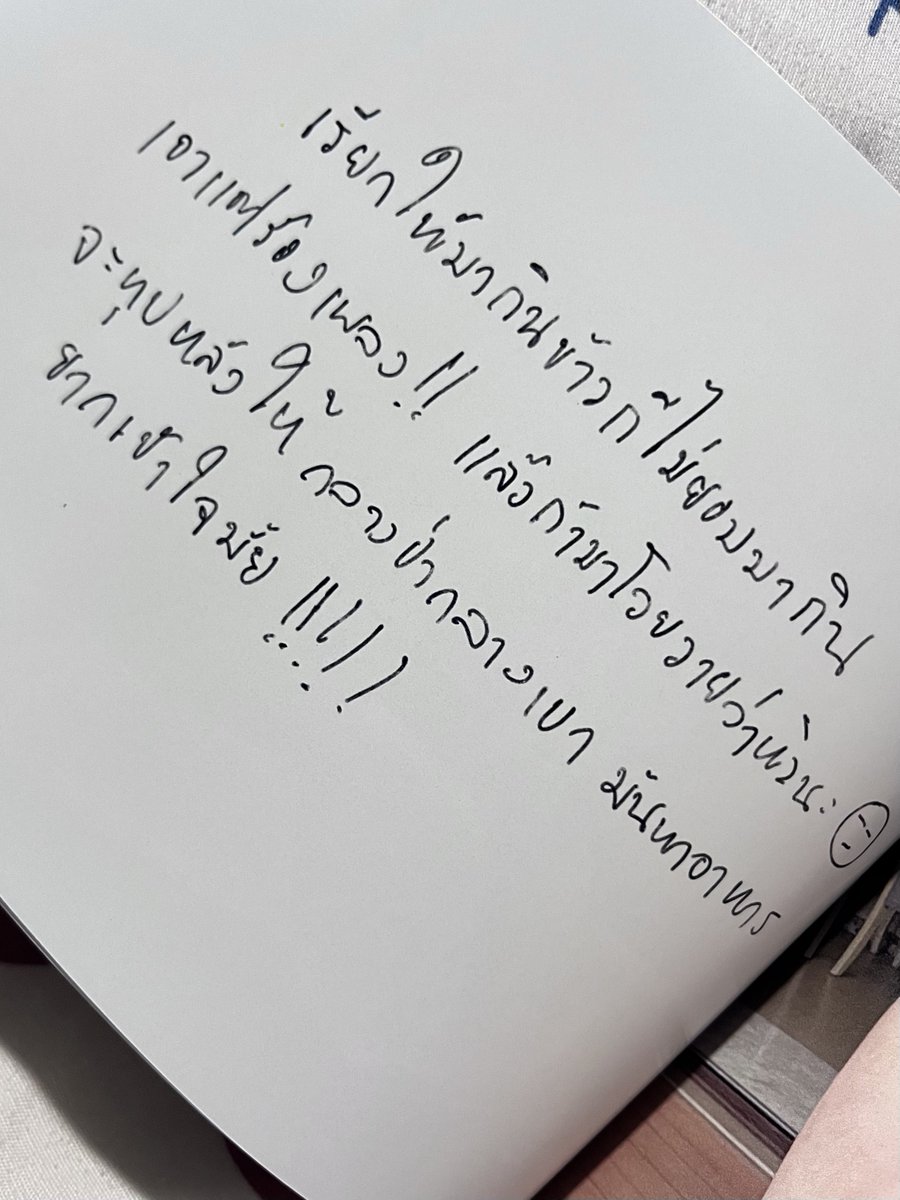 เรียกให้มากินข้าวก็ไม่ยอมมากิน
เอาแต่ร้องเพลง!! แล้วก็มาโวยวายว่าหิวนะ
จะทุบหลังให้ กลางป่ากลางเขา มันหาอาหาร
ยากเข้าใจมั้ย !!!!!!